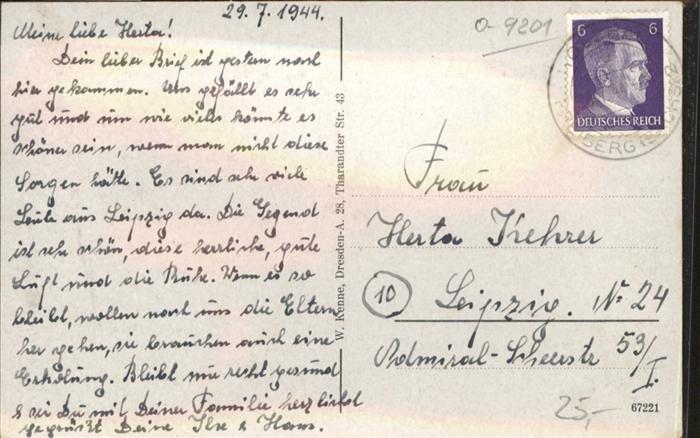 29. 7. 1944.
Meine liebe Herta!
Dein lieber Brief ist gestern noch
hier gekommen. Uns gefällt es sehr
gut und um wie vieles könnte es
schöner sein, wenn man nicht diese
Sorgen hätte. Es sind sehr viele
Leute aus Leipzig da. Die Gegend
ist sehr schön, diese herrliche, gute
Luft und die Ruhe. Wenn es so
bleibt, wollen noch uns die Eltern
her gehen, sie brauchen auch eine
Erholung. Bleibt nur recht gesund
& sei Du mit Deiner Familie herzlichst
gegrüßt Deine Ilse & Hans.
W. Kenne, Dresden-A. 28, Tharandter Str. 43
O- 9201
6 6
DEUTSCHES REICH
BERG
Frau
Herta Kehrer
10 Leipzig. N 24
Admiral-Scheerstr 53/I.
25,-
67221